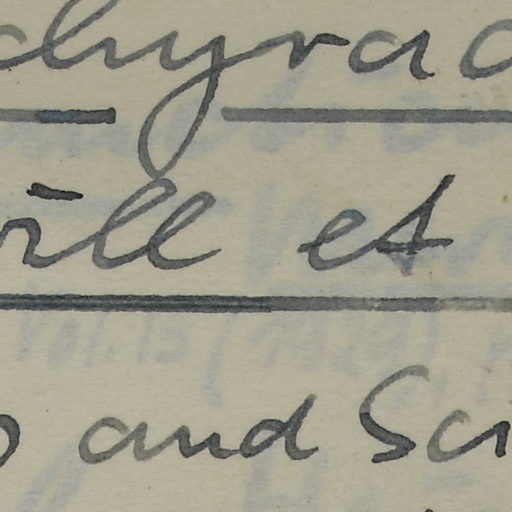 hyra
ill et
and Sa